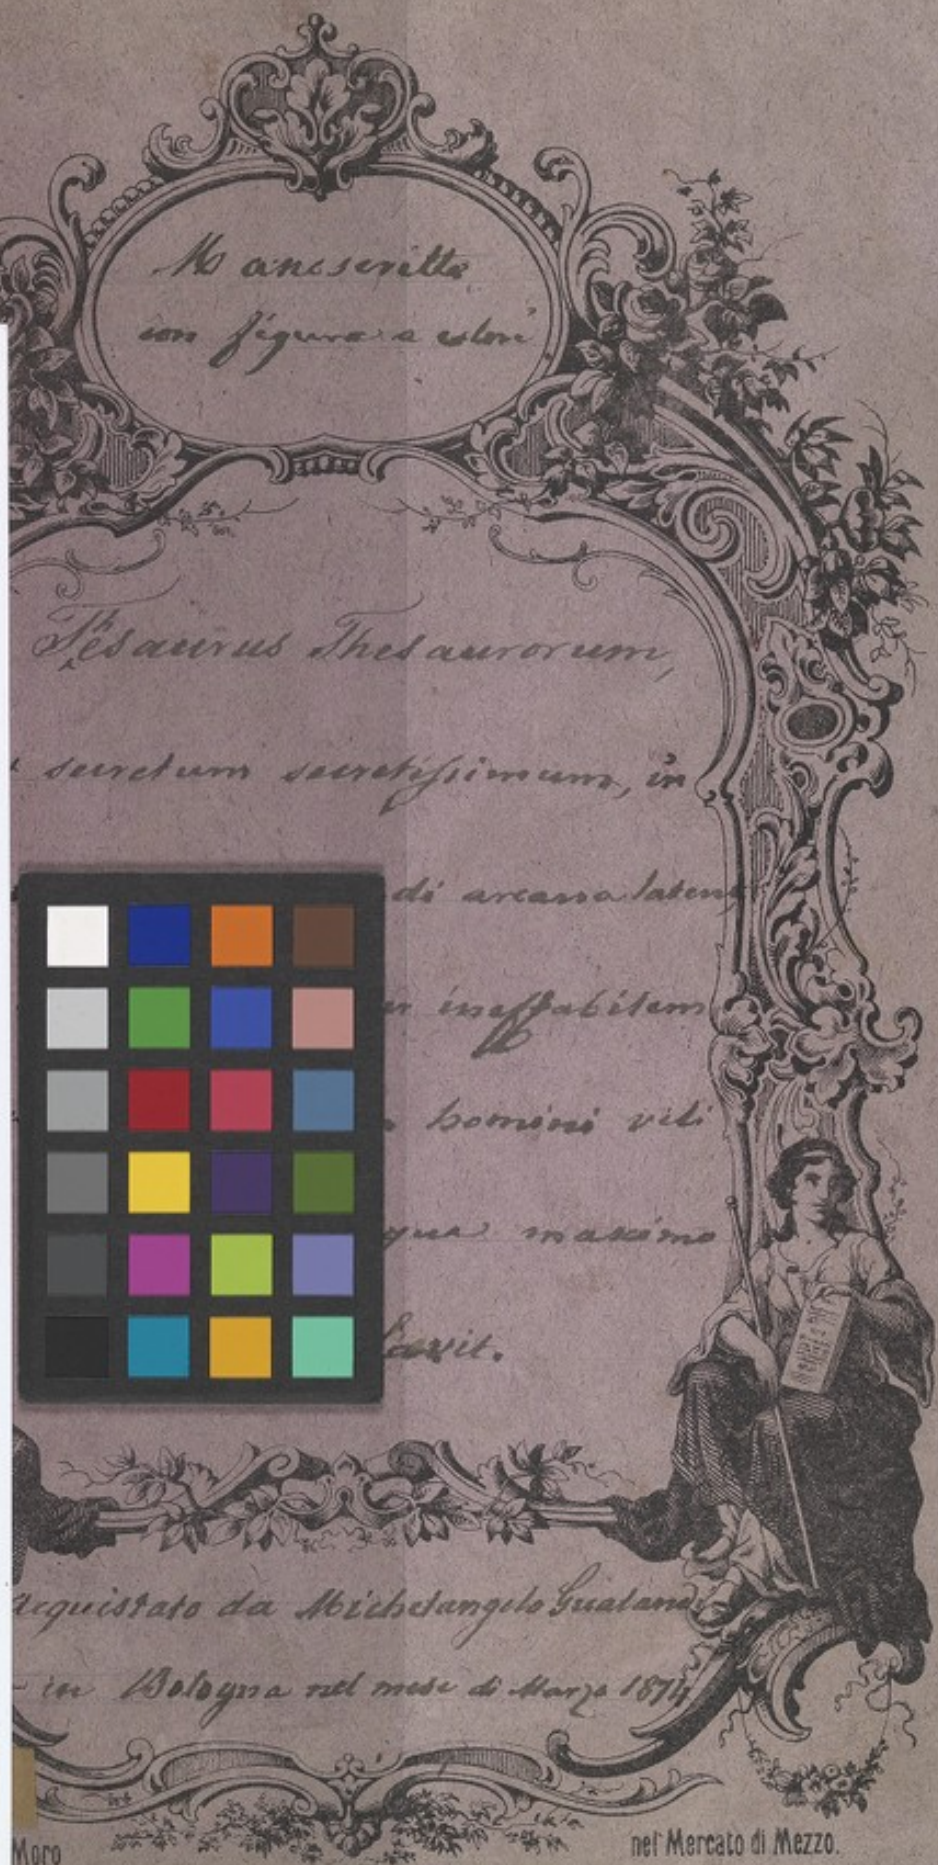 Manoscritto
con figure a colori
Thesaurus Thesaurorum,
secretum secretissimum, in
di arcana latent
ineffabilem
homini vili
qua maximo
Acquistato da Michelangelo Gualandi
in Bologna nel mese di Marzo 1874
Moro
nel Mercato di Mezzo.